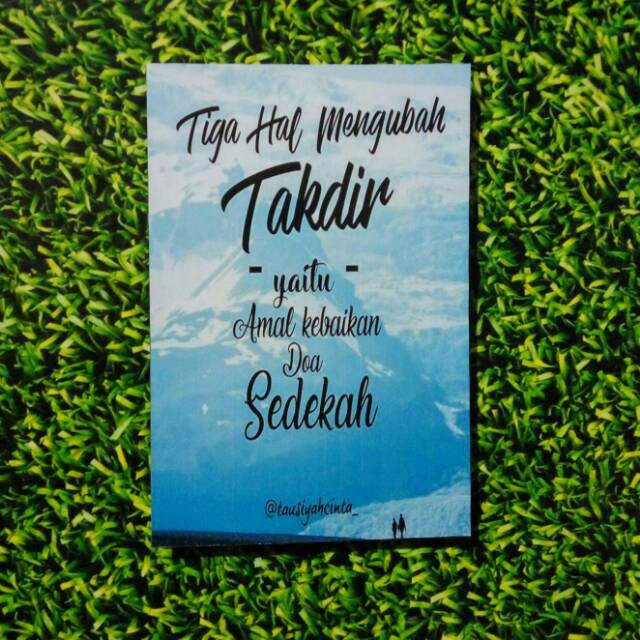 Tiga Hal Mengubah
Takdir
- yaitu -
Amal kebaikan
Doa
Sedekah
@tausiyahcinta_